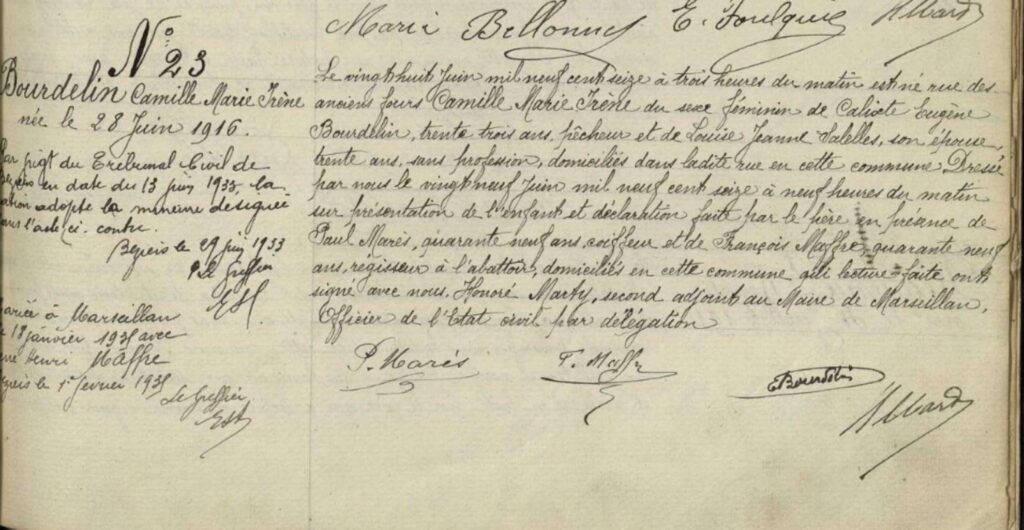 Marie Bellonnet E. Foulquié
N° 23
Bourdelin Camille Marie Irène
née le 28 Juin 1916.
Par jugt du Tribunal Civil de
Béziers en date du 13 juin 1933 la
nation adopte la mineure désignée
dans l'acte ci-contre.
Béziers le 29 juin 1933
Le Greffier
Mariée à Marseillan
le 18 janvier 1935 avec
Henri Maffre
Béziers le 1er février 1935
Le Greffier
Le vingt huit Juin mil neuf cent seize à trois heures du matin est né rue des
anciens fours Camille Marie Irène du sexe féminin de Calixte Eugène
Bourdelin, trente trois ans, pêcheur et de Louise Jeanne Salelles, son épouse,
trente ans, sans profession, domiciliés dans ladite rue en cette commune. Dressé
par nous le vingt neuf Juin mil neuf cent seize à neuf heures du matin
sur présentation de l'enfant et déclaration faite par le père en présence de
Paul Marès, quarante neuf ans, coiffeur et de François Maffre, quarante neuf
ans, régisseur à l'abattoir, domiciliés en cette commune qui lecture faite ont
signé avec nous. Honoré Marty, second adjoint au Maire de Marseillan,
Officier de l'Etat civil par délégation
P. Marès F. Maffre
E Bourdelin